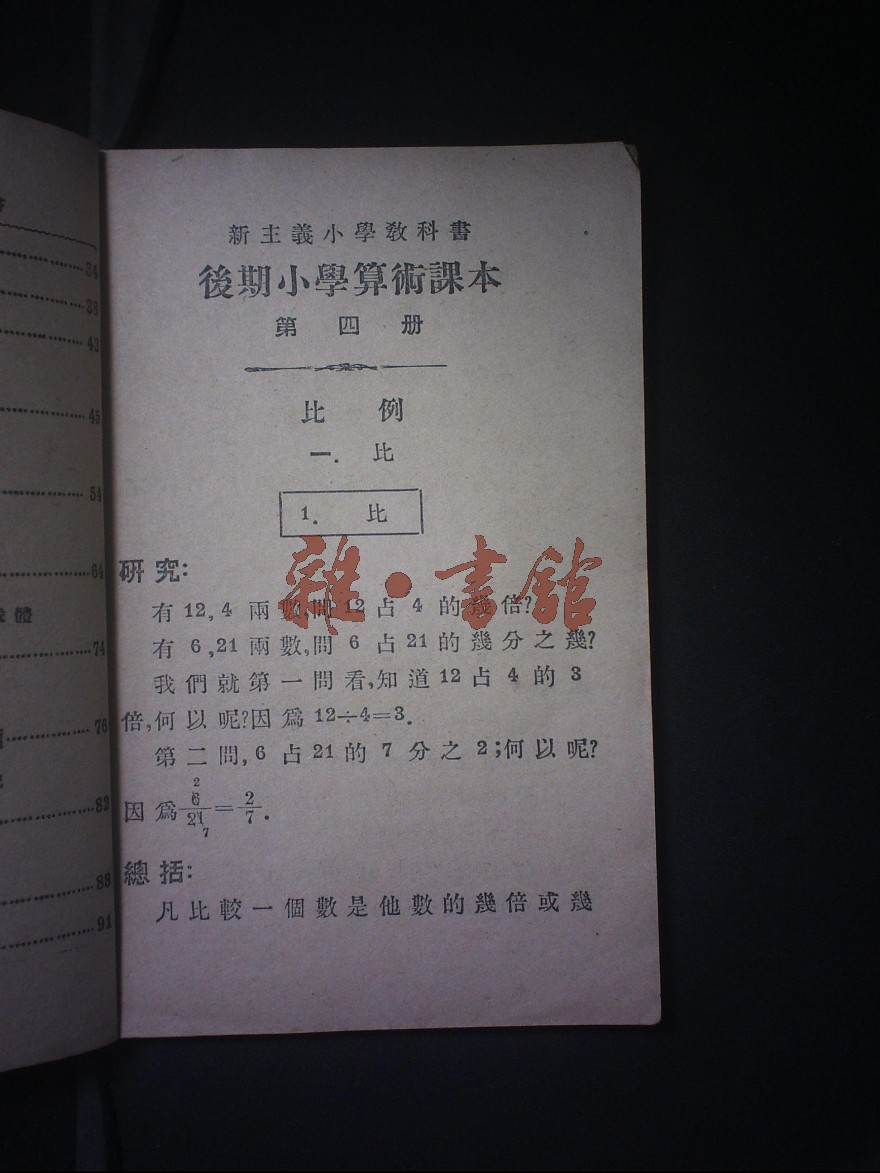 新主義小學教科書
後期小學算術課本
第四册
比例
一. 比
1. 比
研究:
有12,4兩數,問12占4的幾倍?
有6,21兩數,問6占21的幾分之幾?
我們就第一問看,知道12占4的3
倍,何以呢?因爲12÷4=3.
第二問,6占21的7分之2;何以呢?
2
因爲6/21=2/7.
7
總括:
凡比較一個數是他數的幾倍或幾
雜·書館
34
38
43
45
54
64
體
74
76
83
88
91